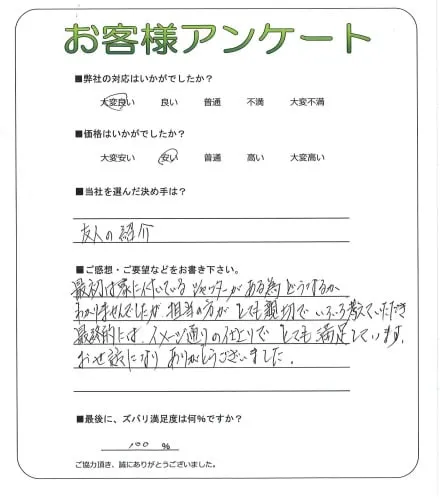 お客様アンケート
■弊社の対応はいかがでしたか？
大変良い 良い 普通 不満 大変不満
■価格はいかがでしたか？
大変安い 安い 普通 高い 大変高い
■当社を選んだ決め手は？
友人の紹介
■ご感想・ご要望などをお書き下さい。
最初は家に付いているシャッターがある為どうするか
わかりませんでしたが、担当の方がとても親切でいろいろ考えていただき
最終的には、イメージ通りの仕上りでとても満足しています。
お世話になりありがとうございました。
■最後に、ズバリ満足度は何％ですか？
100 ％
ご協力頂き、誠にありがとうございました。